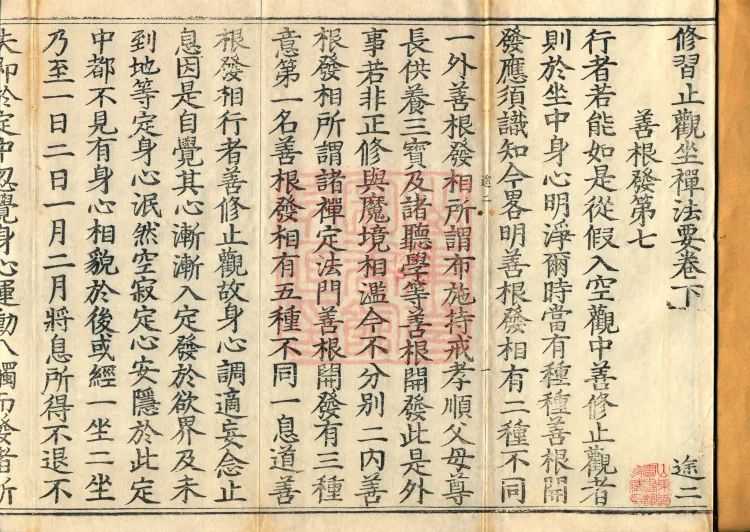 修習止觀坐禪法要卷下
途二
善根發第七
行者若能如是從假入空觀中善修止觀者
則於坐中身心明淨爾時當有種種善根開
發應須識知今畧明善根發相有二種不同
途二
一外善根發相所謂布施持戒孝順父母尊
長供養三寶及諸聽學等善根開發此是外
事若非正修與魔境相濫今不分別二內善
根發相所謂諸禪定法門善根開發有三種
意第一名善根發相有五種不同一息道善
根發相行者善修止觀故身心調適妄念止
息因是自覺其心漸漸入定發於欲界及未
到地等定身心泯然空寂定心安隱於此定
中都不見有身心相貌於後或經一坐二坐
乃至一日二日一月二月將息所得不退不
失即於定中忽覺身心運動八觸而發者所